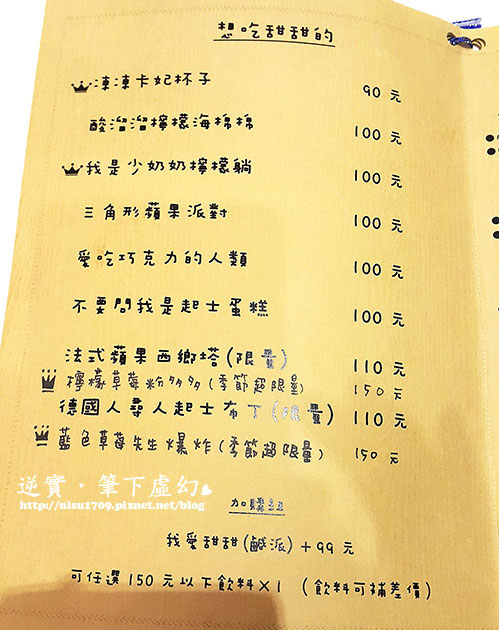 想吃甜甜的
凍凍卡妃杯子 90 元
酸溜溜檸檬海棉棉 100 元
我是少奶奶檸檬躺 100 元
三角形蘋果派對 100 元
愛吃巧克力的人類 100 元
不要問我是起士蛋糕 100 元
法式蘋果西鄉塔(限量) 110 元
檸檬草莓粉多多(季節超限量) 150 元
德國人尋人起士布丁(限量) 110 元
藍色草莓先生爆炸(季節超限量) 150 元
逆實·筆下虛幻
http://nisu1709.pixnet.net/blog
加購組
我愛甜甜(鹹派)+99 元
可任選150元以下飲料×1 (飲料可補差價)